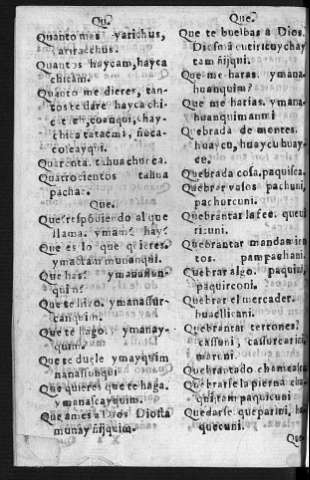 Qu.
Quanto mas yarichus,
Quantos haycam, hayca
chicam.
Quanto me dieren, tan-
tos te dare hayca chi-
chica tatacmi, ñoca-
Quarenta. tahua chunca.
Quatrocientos tahua
pachac.
Que.
Que respōdiendo al que
llama. ymam? hay?
Que es lo que quieres.
ymactam munanqui.
Que has?
Que te hizo. ymanassur-
canquim.
Que te hago. ymanay-
quim.
Que te duele ymayquim
nanassunqui
Que quieres que te haga.
ymanascayquim.
Que ames a Dios Diosta
munay ñijquim.
Que.
Que te buelbas a Dios.
Diosmā cutiricuychay
tam ñijqui.
Que me haras. ymana-
huanquim?
Que me harias. ymana-
huanquimanmi
Quebrada de montes.
huaycu, huaycuhuay-
Quebrada cosa, paquisca.
Quebrar vasos pachuni,
pachurcuni.
Quebrantar la fee.
Quebrantar mandamien
tos. pampachani.
Quebrar algo. paquini,
paquirconi.
Quebrar el mercader.
Quebrantar terrones.
cassuni, cassurcarini,
Quebrantado
Quebrarse la pierna
paquicuni
Quedarse que parini,
quecuni.
Que